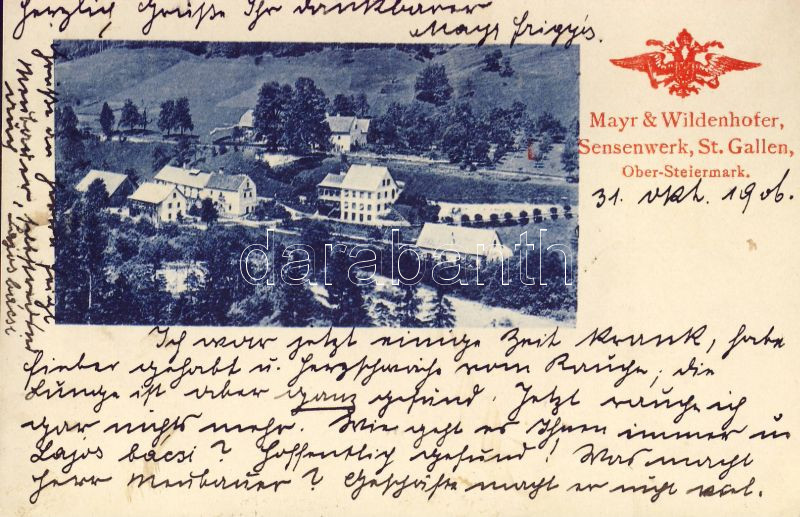 Mayr & Wildenhofer,
Sensenwerk, St. Gallen,
Ober-Steiermark.
31. Okt. 1906.
Ich war jetzt einige Zeit krank, habe
Fieber gehabt u. Herzschwäche vom Rauche; die
Lunge ist aber ganz gesund. Jetzt rauche ich
gar nichts mehr. Wie geht es Ihnen immer u
Lajos bácsi? Hoffentlich gesund! Was macht
Herr Neubauer? Geschäfte macht er nicht viel.
Grüße an Herrn
Neubauer,
Lajos bácsi
Herzlich Grüße Ihr dankbarer
Mayr Frigyes.
darabanth